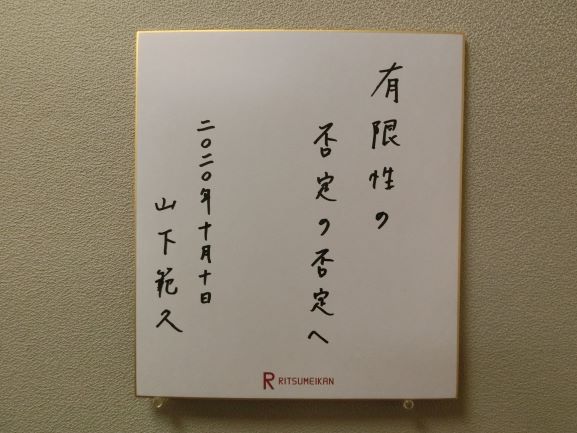 有限性の
否定の否定へ
二〇二〇年十月十日
山下範久
RITSUMEIKAN